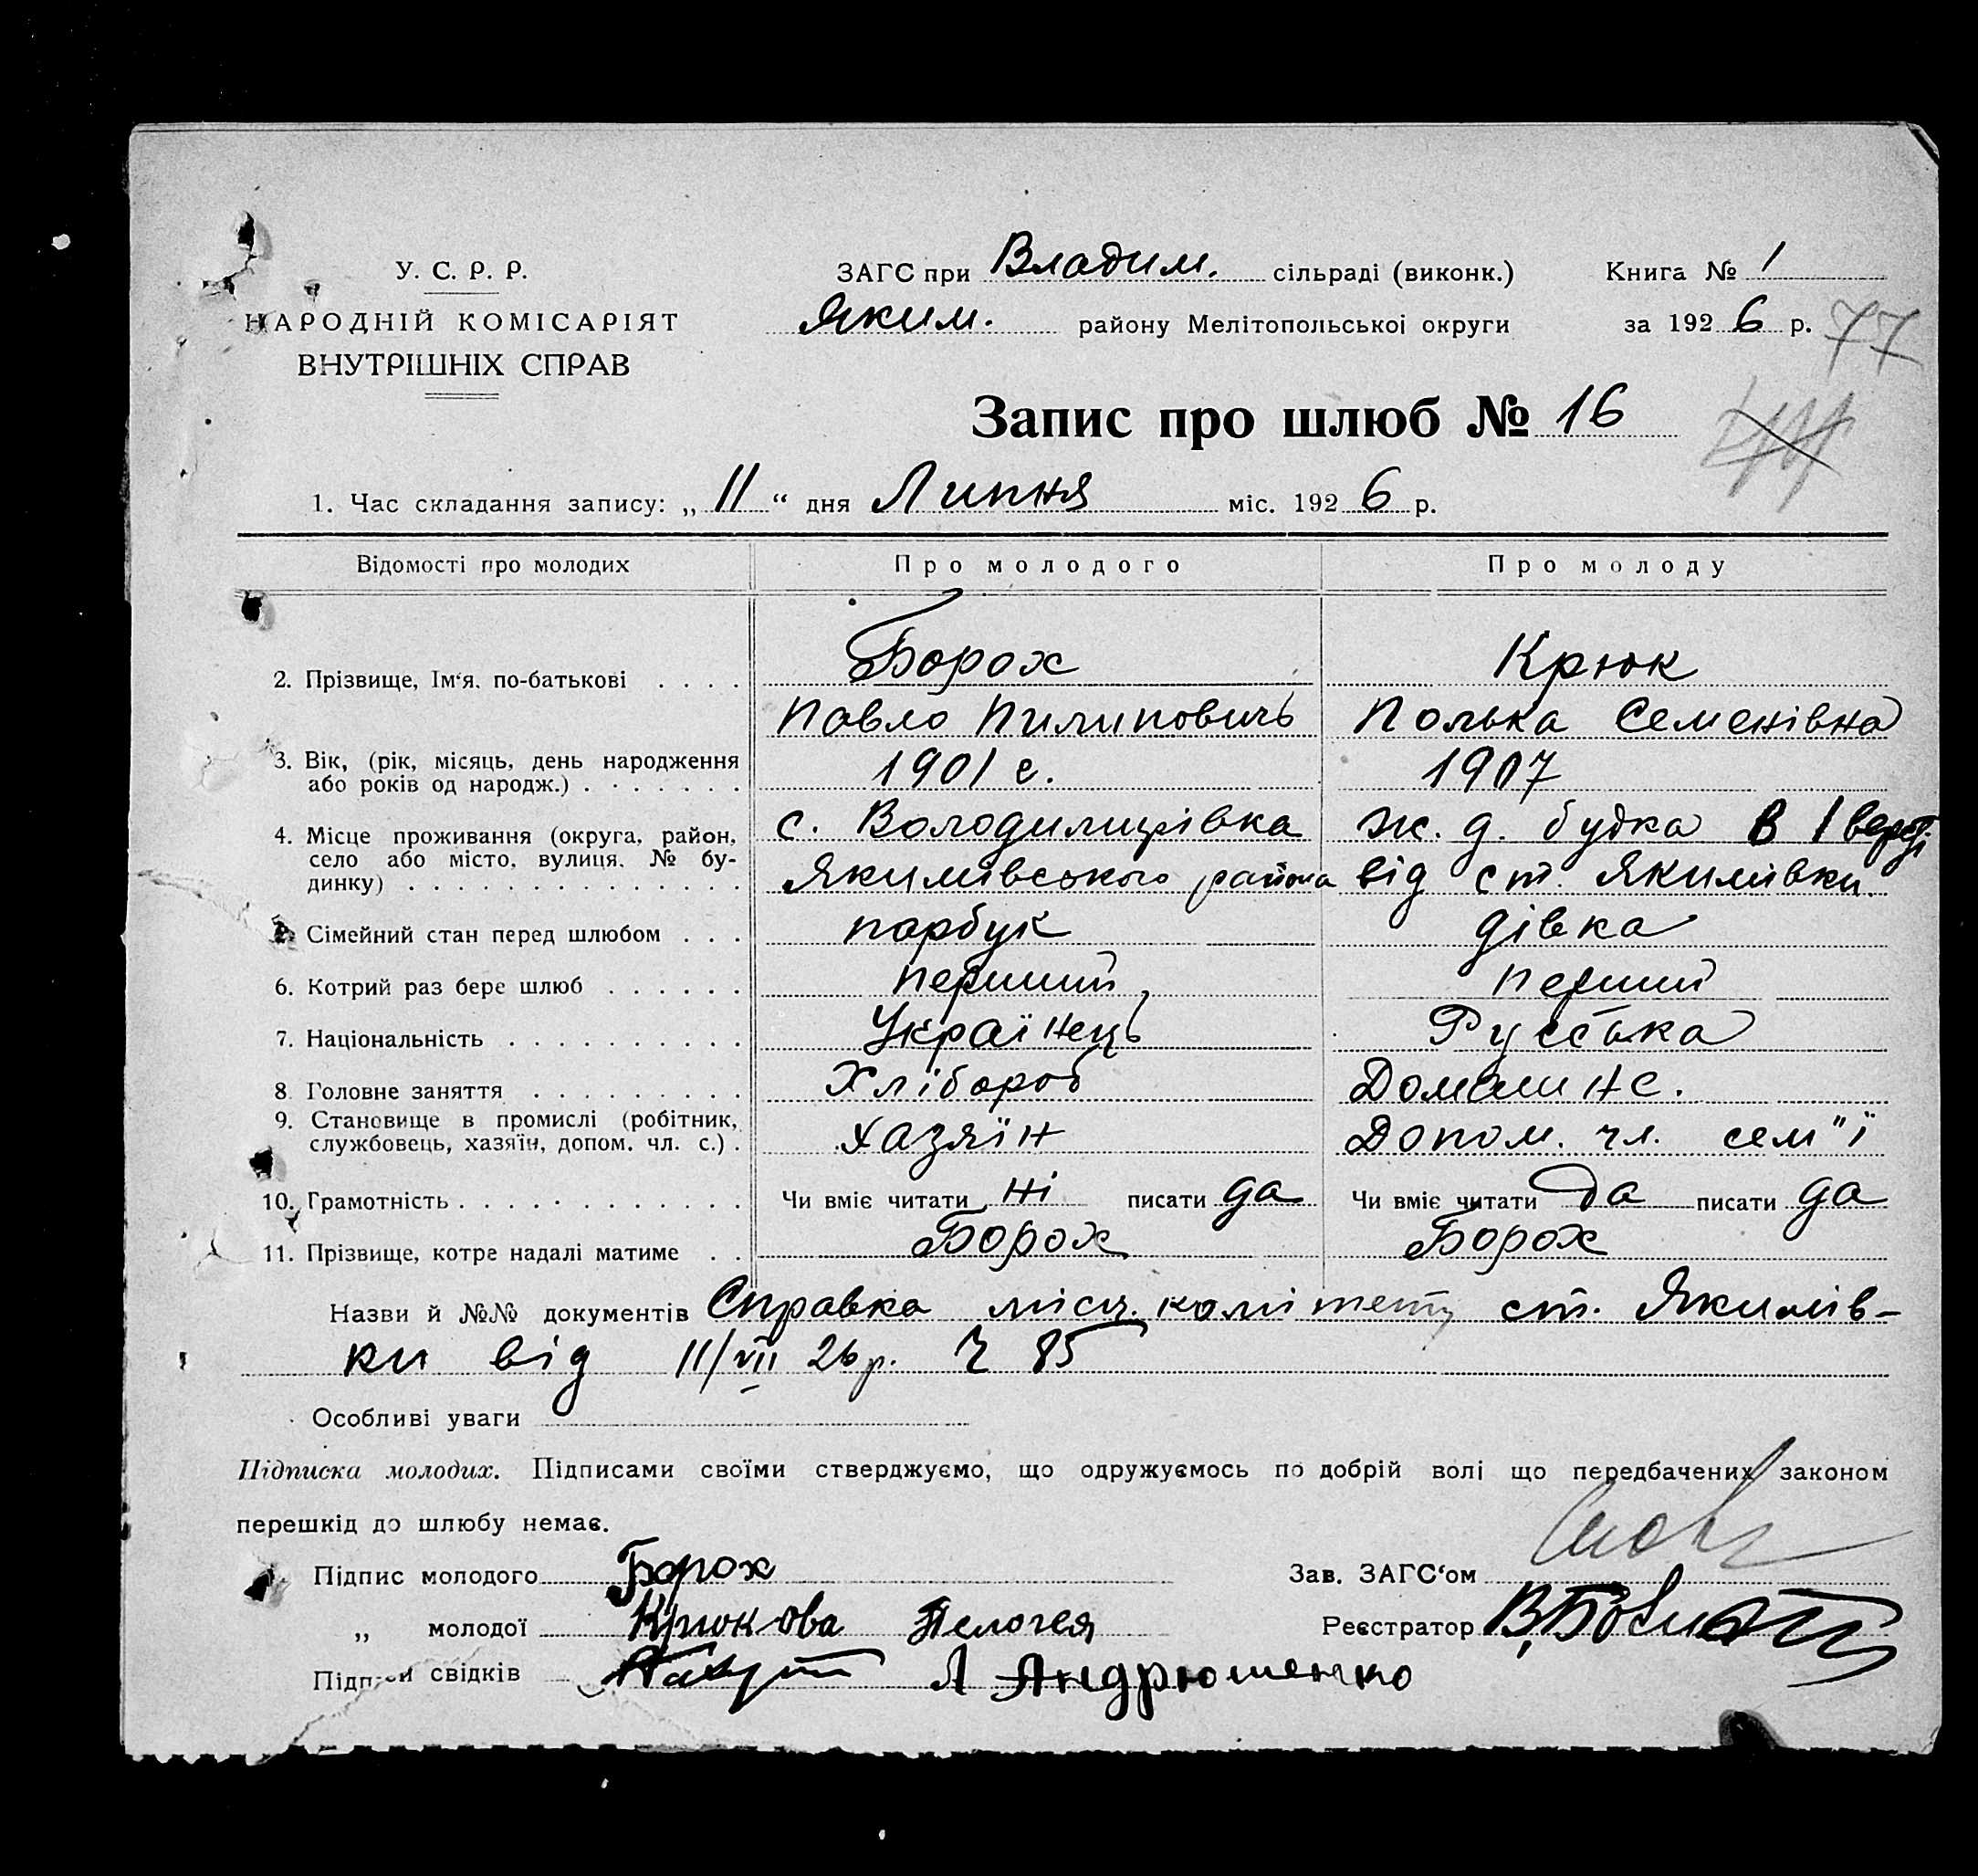 У. С. Р. Р.
НАРОДНІЙ КОМІСАРІЯТ
ВНУТРІШНІХ СПРАВ
ЗАГС при Владим. сільраді (виконк.) Книга № 1
Яким. району Мелітопольської округи за 1926 р. 77
Запис про шлюб № 16
1. Час складання запису: „11“ дня Липня міс. 1926 р.
Відомості про молодих Про молодого Про молоду
2. Прізвище, Ім‘я, по-батькові . . . . Борох Крюк
Павло Пилиповичь Полька Семенівна
3. Вік, (рік, місяць, день народження
або років од народж.) . . . . . . . 1901 г. 1907
4. Місце проживання (округа, район, с. Володимирівка ж. д. будка в 1 верст.
село або місто, вулиця, № бу-
динку) . . . . . . . . . . . . . . Якимівського района від ст. Якимівки.
Сімейний стан перед шлюбом . . . парубук дівка
6. Котрий раз бере шлюб . . . . . . перший перший
7. Національність . . . . . . . . . . Українець Руська
8. Головне заняття . . . . . . . . . Хлібороб Домашнє.
9. Становище в промислі (робітник,
службовець, хазяїн, допом. чл. с.) . Хазяїн Допом. чл. сем"ї
10. Грамотність . . . . . . . . . . . . Чи вміє читати ні писати да Чи вміє читати да писати да
11. Прізвище, котре надалі матиме . . Борох Борох
Назви й №№ документів Справка місц. комітету ст. Якимів-
ки від 11/VII 26 р. Ч 85
Особливі уваги
Підписка молодих. Підписами своїми стверджуємо, що одружуємось по добрій волі що передбачених законом
перешкід до шлюбу немає.
Підпис молодого Борох Зав. ЗАГС‘ом
„ молодої Крюкова Пелогея Реєстратор
Підписи свідків Л Андрюшенко